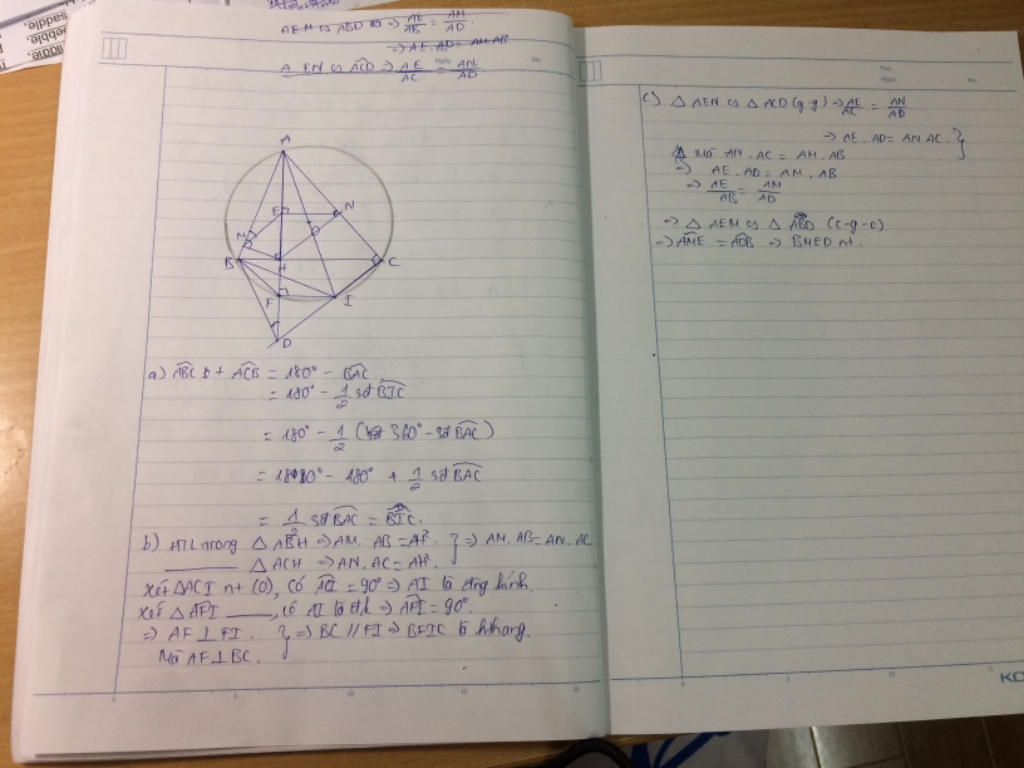 saddle.
pebble.
fiddle.
AEM ∽ ABD ⇒ AE/AB = AM/AD.
⇒ AE.AD = AM.AB
A EN ∽ ACD ⇒ AE/AC = AN/AD
A
E
N
M
O
B
H
C
F
I
D
a) ABC + ACB = 180° - BAC
= 180° - 1/2 sđ BIC
= 180° - 1/2 (360° - sđ BAC)
= 180° - 180° + 1/2 sđ BAC
= 1/2 sđ BAC = BIC.
b) HTL trong △ ABH ⇒ AM. AB = AH². } ⇒ AM. AB = AN. AC
△ ACH ⇒ AN. AC = AH².
xét △ACI nt (O), Có ACI = 90° ⇒ AI là đng kính.
xét △ AFI, có AI là đk ⇒ AFI = 90°.
⇒ AF ⊥ FI. } ⇒ BC // FI ⇒ BFIC là hthang.
Mà AF ⊥ BC.
c) △ AEN ∽ △ ACD (g-g) ⇒ AE/AC = AN/AD
⇒ AE. AD = AN AC. }
Mà AN. AC = AM. AB
⇒ AE. AD = AM. AB
⇒ AE/AB = AM/AD
⇒ △ AEM ∽ △ ABD (c-g-c)
⇒ AME = ADB ⇒ BMED nt.